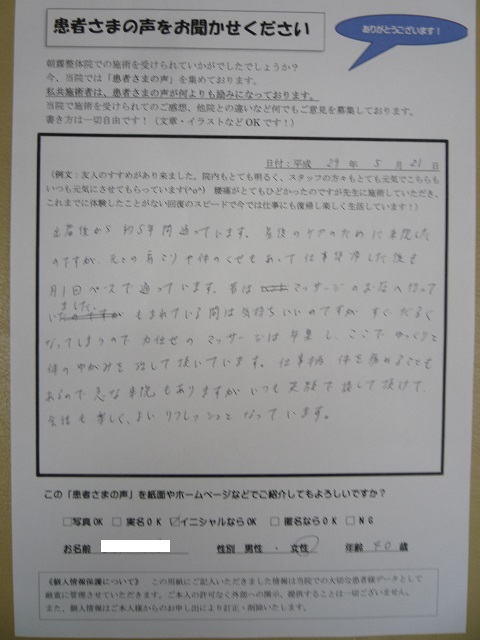 患者さまの声をお聞かせください
ありがとうございます！
朝霧整体院での施術を受けられていかがでしたでしょうか？
今、当院では「患者さまの声」を集めております。
私共施術者は、患者さまの声が何よりも励みになっております。
当院で施術を受けられてのご感想、他院との違いなど何でもご意見を募集しております。
書き方は一切自由です！（文章・イラストなどOKです！）
日付：平成 29 年 5 月 21 日
（例文：友人のすすめがあり来ました。院内もとても明るく、スタッフの方々もとても元気でこちらも
いつも元気にさせてもらっています(^o^) 腰痛がとてもひどかったのですが先生に施術していただき、
これまでに体験したことがない回復のスピードで今では仕事にも復帰し楽しく生活しています！）
出産後から約5年間通っています。産後のケアのために来院した
のですが、元々の肩こりや体のくせもあって仕事復帰した後も
月1回ペースで通っています。昔は マッサージのお店へ行って
いました。もまれている間は気持ちいいのですが すぐだるく
なってしまうので力任せのマッサージは卒業し、ここでゆっくりと
体のゆがみを治して頂いています。仕事柄 体を痛めることも
あるので急な来院もありますが いつも笑顔で接して頂けて、
会話も楽しく、よいリフレッシュとなっています。
この「患者さまの声」を紙面やホームページなどでご紹介してもよろしいですか？
□写真OK □実名OK ☑イニシャルならOK □匿名ならOK □NG
お名前 性別 男性 ・ 女性 年齢 40 歳
《個人情報保護について》 この用紙にご記入いただきました情報は当院での大切な患者様データとして
厳重に管理させていただきます。ご本人の許可なく外部への開示、提供することは一切ございません。
また、個人情報はご本人様からのお申し出により訂正・削除いたします。